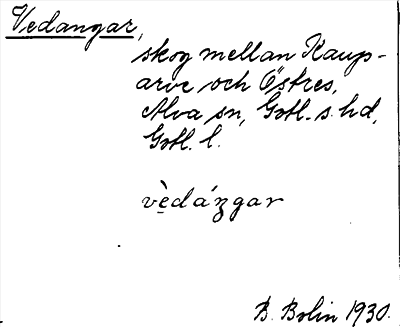 Vedangar,
skog mellan Kaup-
arve och Östres,
Alva sn, Gotl. s. hd,
Gotl. l.
vè̤dáꞑgar
B. Bolin 1930.